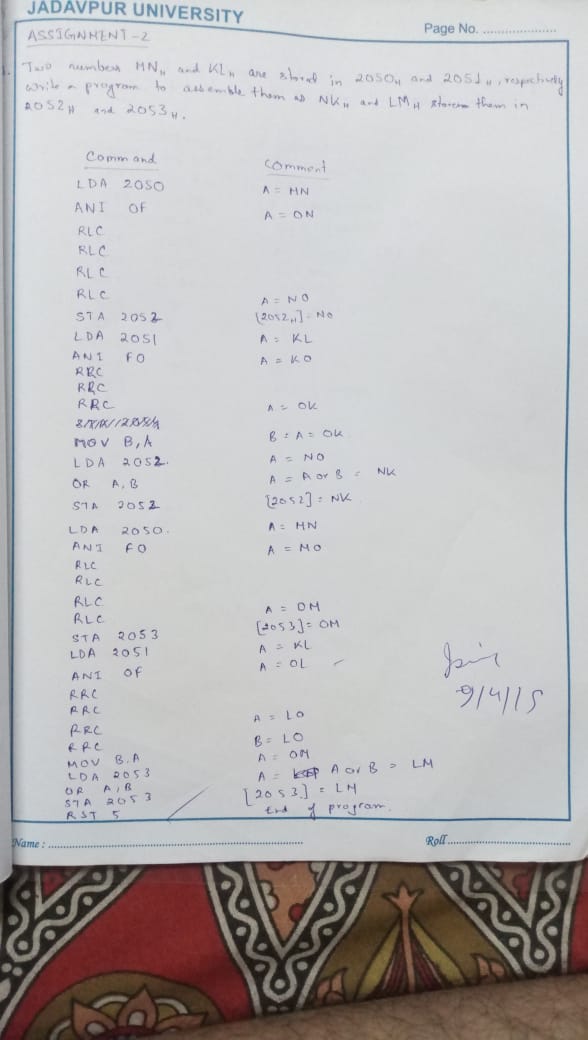 JADAVPUR UNIVERSITY
Page No. ....................
ASSIGNMENT-2
1. Two numbers MNH and KLH are stored in 2050H and 2051H, respectively
write a program to assemble them as NKH and LMH them in
2052H and 2053H.
Command Comment
LDA 2050 A = MN
ANI OF A = ON
RLC
RLC
RLC
RLC A = NO
STA 2052 [2052H] = NO
LDA 2051 A = KL
ANI FO A = KO
RRC
RRC
RRC A = OK
MOV B,A B = A = OK
LDA 2052. A = NO
OR A,B A = A or B = NK
STA 2052 [2052] = NK
LDA 2050. A = MN
ANI FO A = MO
RLC
RLC
RLC
RLC A = OM
STA 2053 [2053] = OM
LDA 2051 A = KL
ANI OF A = OL
RRC
RRC
RRC A = LO
RRC B = LO
MOV B.A A = OM
LDA 2053 A = A or B = LM
OR A,B [2053] = LM
STA 2053 End of program.
RST 5
9/4/15
Name : .................... Roll ....................